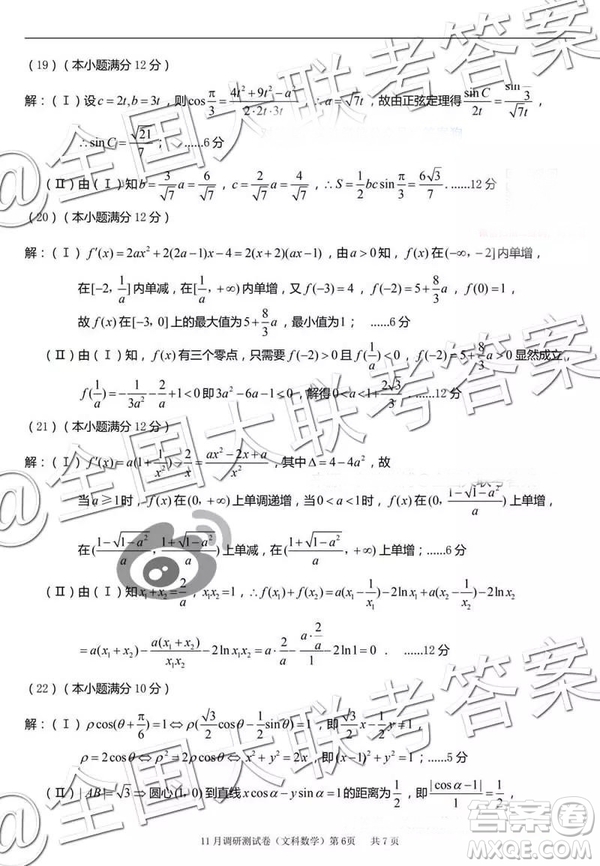 （19）（本小题满分 12 分）
解：（Ⅰ）设 c = 2t, b = 3t，则 cos π/3 = (4t² + 9t² − a²)/(2·2t·3t) ∴ a = √7 t，故由正弦定理得 sin C/2t = sin π/3/√7t，
∴ sin C = √21/7； ……6 分
（Ⅱ）由（Ⅰ）知 b = 3/√7 a = 6/√7，c = 2/√7 a = 4/√7，∴ S = 1/2 bc sin π/3 = 6√3/7 . ……12 分
（20）（本小题满分 12 分）
解：（Ⅰ） f′(x) = 2ax² + 2(2a −1)x − 4 = 2(x + 2)(ax −1) ，由 a > 0 知， f(x) 在 (−∞, −2] 内单增，
在 [−2, 1/a] 内单减，在 [1/a, +∞) 内单增，又 f(−3) = 4 ，f(−2) = 5 + 8/3 a，f(0) = 1
故 f(x) 在 [−3, 0] 上的最大值为 5 + 8/3 a，最小值为 1； ……6 分
（Ⅱ）由（Ⅰ）知， f(x) 有三个零点，只需要 f(−2) > 0 且 f(1/a) < 0，f(−2) = 5 + 8/3 a > 0 显然成立，
f(1/a) = −1/3a² − 2/a + 1 < 0 即 3a² − 6a −1 < 0，解得 0 < a < 1 + 2√3/3 . ……12 分
（21）（本小题满分 12 分）
解：（Ⅰ） f′(x) = a(1 + 1/x²) − 2/x = (ax² − 2x + a)/x² ，其中 Δ = 4 − 4a²，故
当 a ≥ 1 时， f(x) 在 (0, +∞) 上单调递增，当 0 < a < 1 时， f(x) 在 (0, (1−√1−a²)/a) 上单增，
在 ((1−√1−a²)/a, (1+√1−a²)/a) 上单减，在 ((1+√1−a²)/a, +∞) 上单增；……6 分
（Ⅱ）由（Ⅰ）知 x₁ + x₂ = 2/a，x₁x₂ = 1，∴ f(x₁) + f(x₂) = a(x₁ − 1/x₁) − 2ln x₁ + a(x₂ − 1/x₂) − 2ln x₂
= a(x₁ + x₂) − a(x₁ + x₂)/x₁x₂ − 2ln x₁x₂ = a·2/a − (a·2/a)/1 − 2ln1 = 0 . ……12 分
（22）（本小题满分 10 分）
解：（Ⅰ） ρcos(θ + π/6) = 1 ⇔ ρ(√3/2 cosθ − 1/2 sinθ) = 1，即 √3/2 x − 1/2 y = 1
ρ = 2cosθ ⇔ ρ² = 2ρcosθ ⇔ x² + y² = 2x，即 (x −1)² + y² = 1；……5 分
（Ⅱ）| AB |= √3 ⇔ 圆心 (1, 0) 到直线 x cosα − y sinα = 1 的距离为 1/2，即 |cosα −1|/1 = 1/2，
11 月调研测试卷（文科数学）第 6页 共 7 页
@全国大联考答案